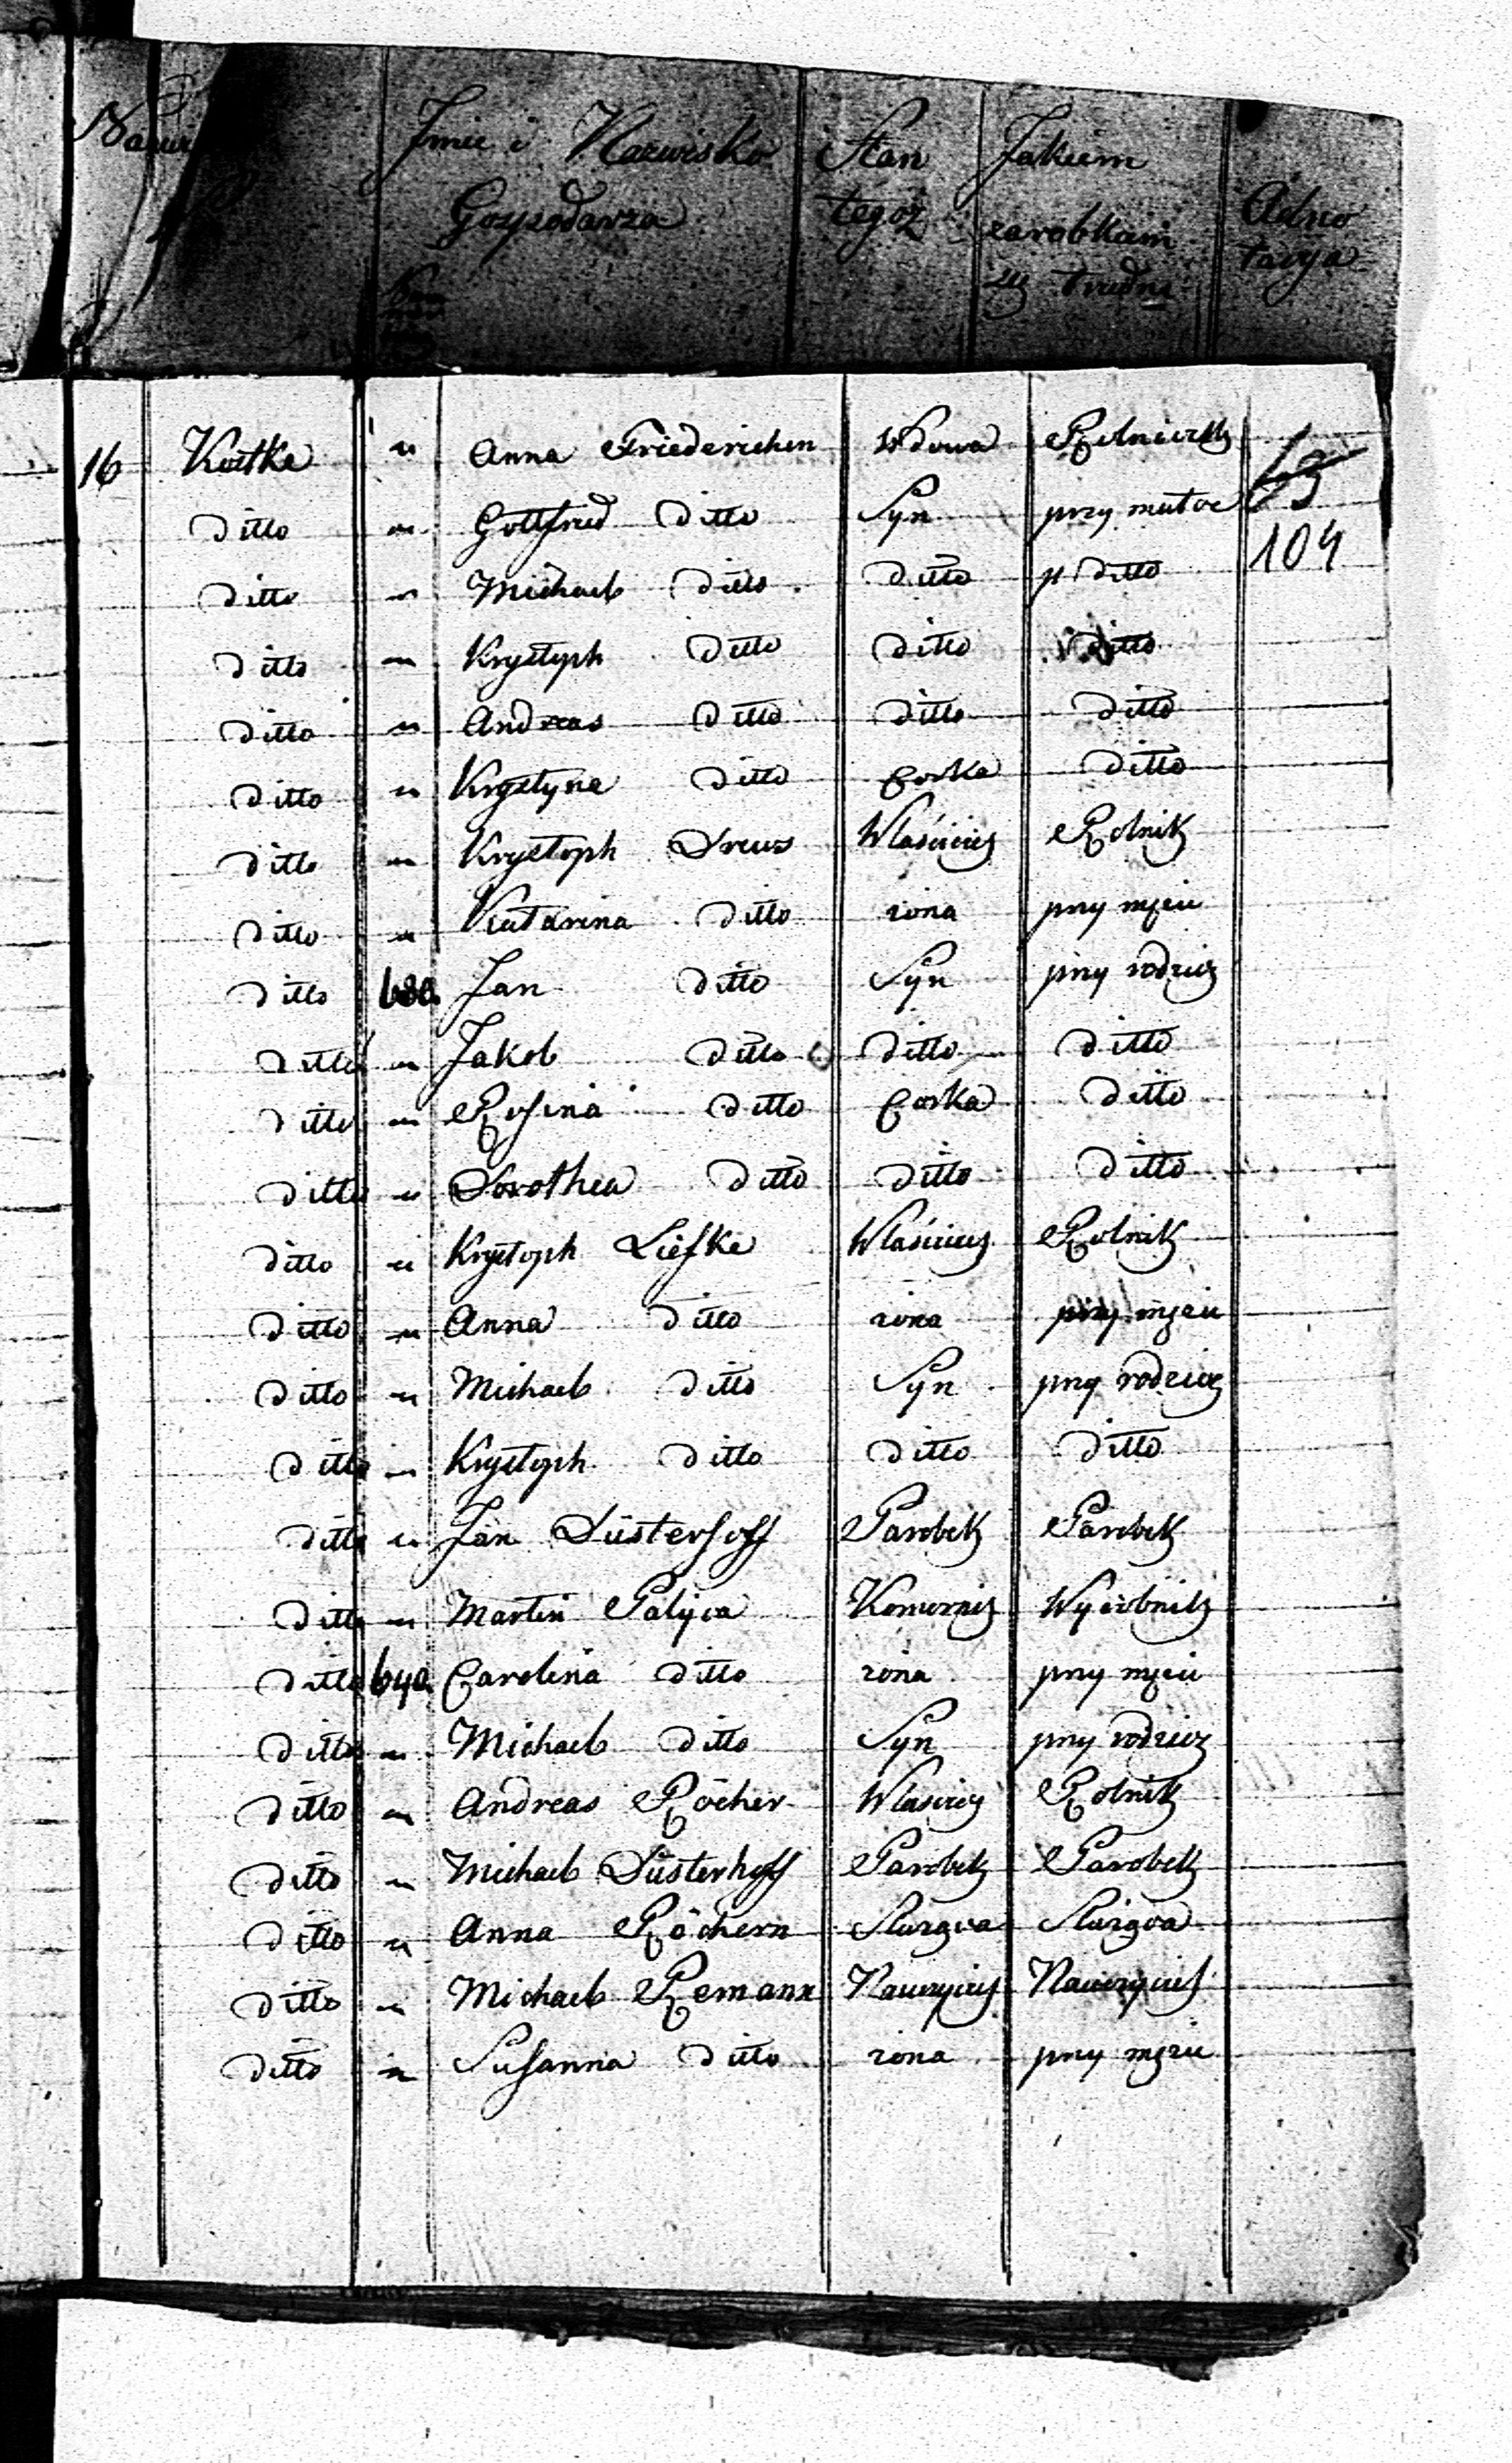 Imie i Nazwisko Gospodarza Stan tegoż Jakiem zarobkiem się trudni Adnotacya
16 Kottke " Anna Friederichen Wdowa Rolniczk
ditto " Gottfried ditto Syn przy matce 63
ditto " Michael ditto ditto p ditto 104
ditto " Krystoph ditto ditto ditto
ditto " Andreas ditto ditto ditto
ditto " Krystyna ditto Corka ditto
ditto " Krystoph Drews Właściciel Rolnik
ditto " Katarina ditto żona przy mężu
ditto 630 Jan ditto Syn przy rodzicz
ditto " Jakob ditto ditto ditto
ditto " Rosina ditto Corka ditto
ditto " Dorothea ditto ditto ditto
ditto " Krystoph Liefke Właściciel Rolnik
ditto " Anna ditto żona przy mężu
ditto " Michael ditto Syn przy rodzicz
ditto " Krystoph ditto ditto ditto
ditto " Jan Düsterhoff Parobek Parobek
ditto " Martin Palyca Komornik Wyrobnik
ditto 640 Carolina ditto żona przy mężu
ditto " Michael ditto Syn przy rodzicz
ditto " Andreas Röcher Właściciel Rolnik
ditto " Michael Düsterhoff Parobek Parobek
ditto " Anna Röchern Sługąca Sługąca
ditto " Michael Remann Nauczyciel Nauczyciel
ditto " Susanna ditto żona przy mężu